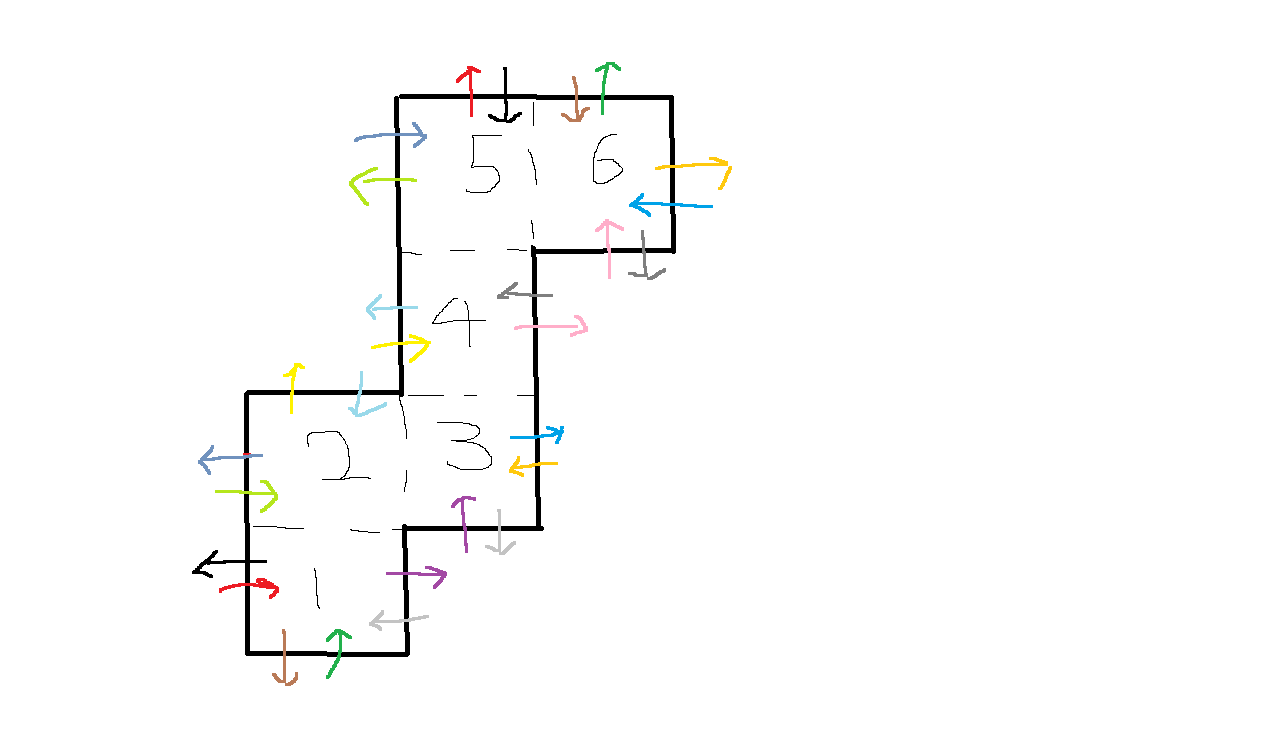 5 6
4
2 3
1